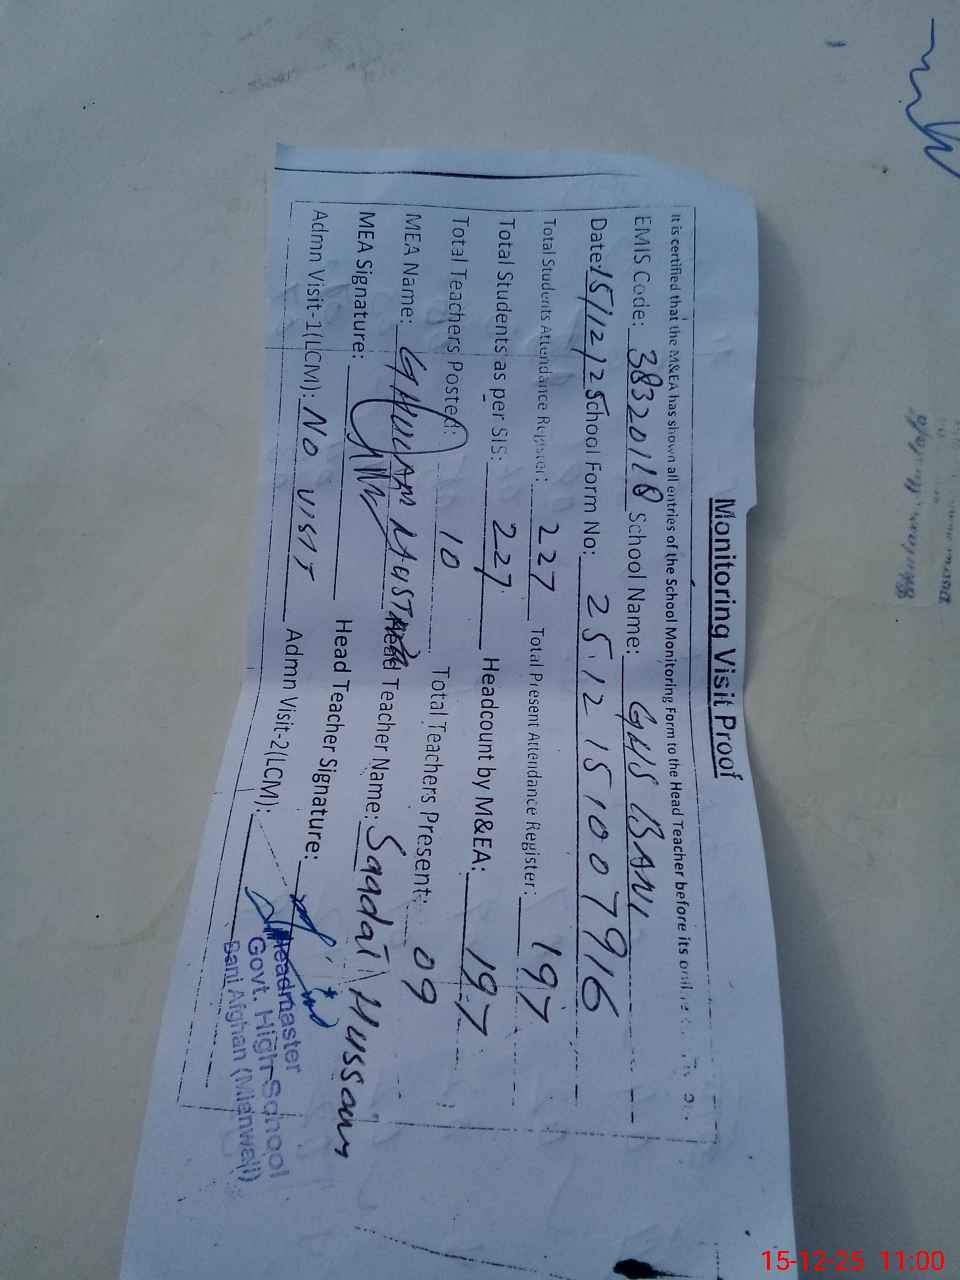 Monitoring Visit Proof
It is certified that the M&EA has shown all entries of the School Monitoring Form to the Head Teacher before its
EMIS Code: 38320118 School Name: GHS BANI
Date: 15/12/25 School Form No: 25 12 15 100 7916
Total Students Attendance Register: 227 Total Present Attendance Register: 197
Total Students as per SIS: 227 Headcount by M&EA: 197
Total Teachers Posted: 10 Total Teachers Present: 09
MEA Name: GHULAM MUSTAFA Head Teacher Name: Saadat Hussain
MEA Signature: Head Teacher Signature:
Admn Visit-1(LCM): No VISIT Admn Visit-2(LCM):
Headmaster
Govt. High School
Bani Afghan (Mianwali)
15-12-25 11:00